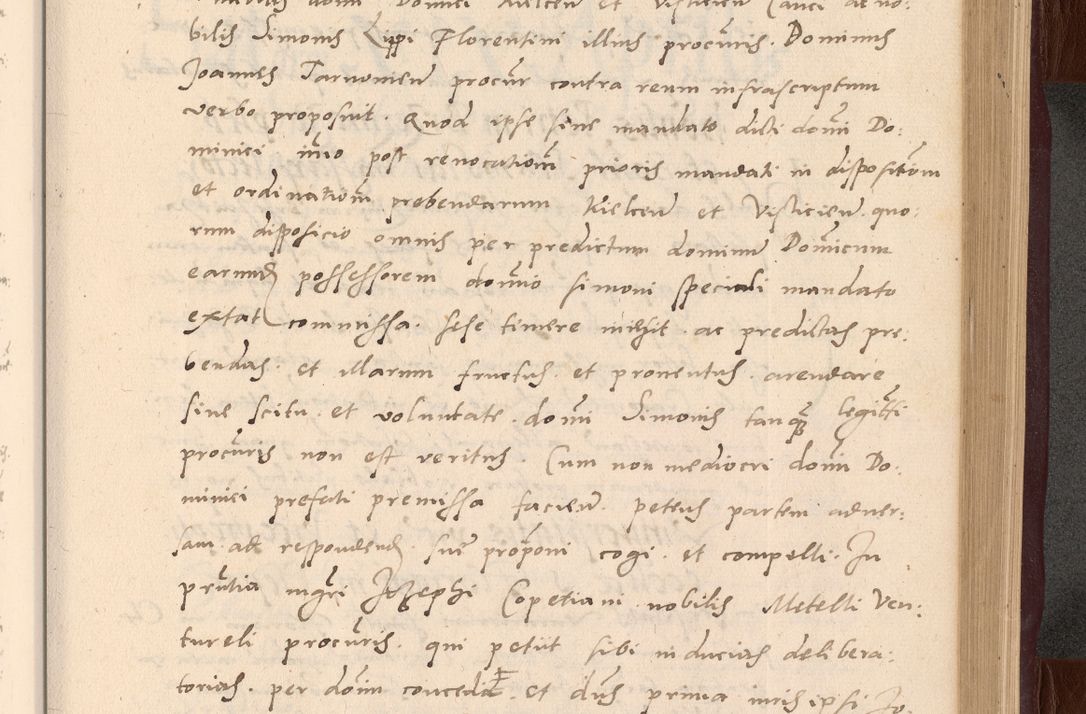 domi Dominici Kielcen̄ et Visticien̄ Canci ac no:
bilis Simonis Lippi Florentini illius procuris. Dominus
Joannes Tarnonien̄ procur contra reum infrascriptum
verbo proposuit. Quod ipse sine mandato dicti domi Do:
minici im̄o post renocationem prioris mandati in dispositiōm
et ordinatiōm prebendarum Kielcen̄ et Visticien̄. quo:
rum disposicio omnis per predictum dominum Domicum
earumd possessorem domno simoni speciali mandato
extat commissa. sese timere inihit. ac predictas pre:
bendas. et illarum fructus. et prouentus. arendare
sine scitu. et voluntate. domi Simonis tanq legitti
procuris non est veritus. Cum non mediocri domi Do:
minici prefati premissa facien̄. petens partem aduer:
sam ad respondend sue proponi cogi. et compelli. In
prntia mgri Jozephi Copetiani nobilis Metelli Ven:
tureli procuris. qui petiit sibi inducias delibera:
torias. per domi concedi. et dūs prima iuris ipsi Jo-